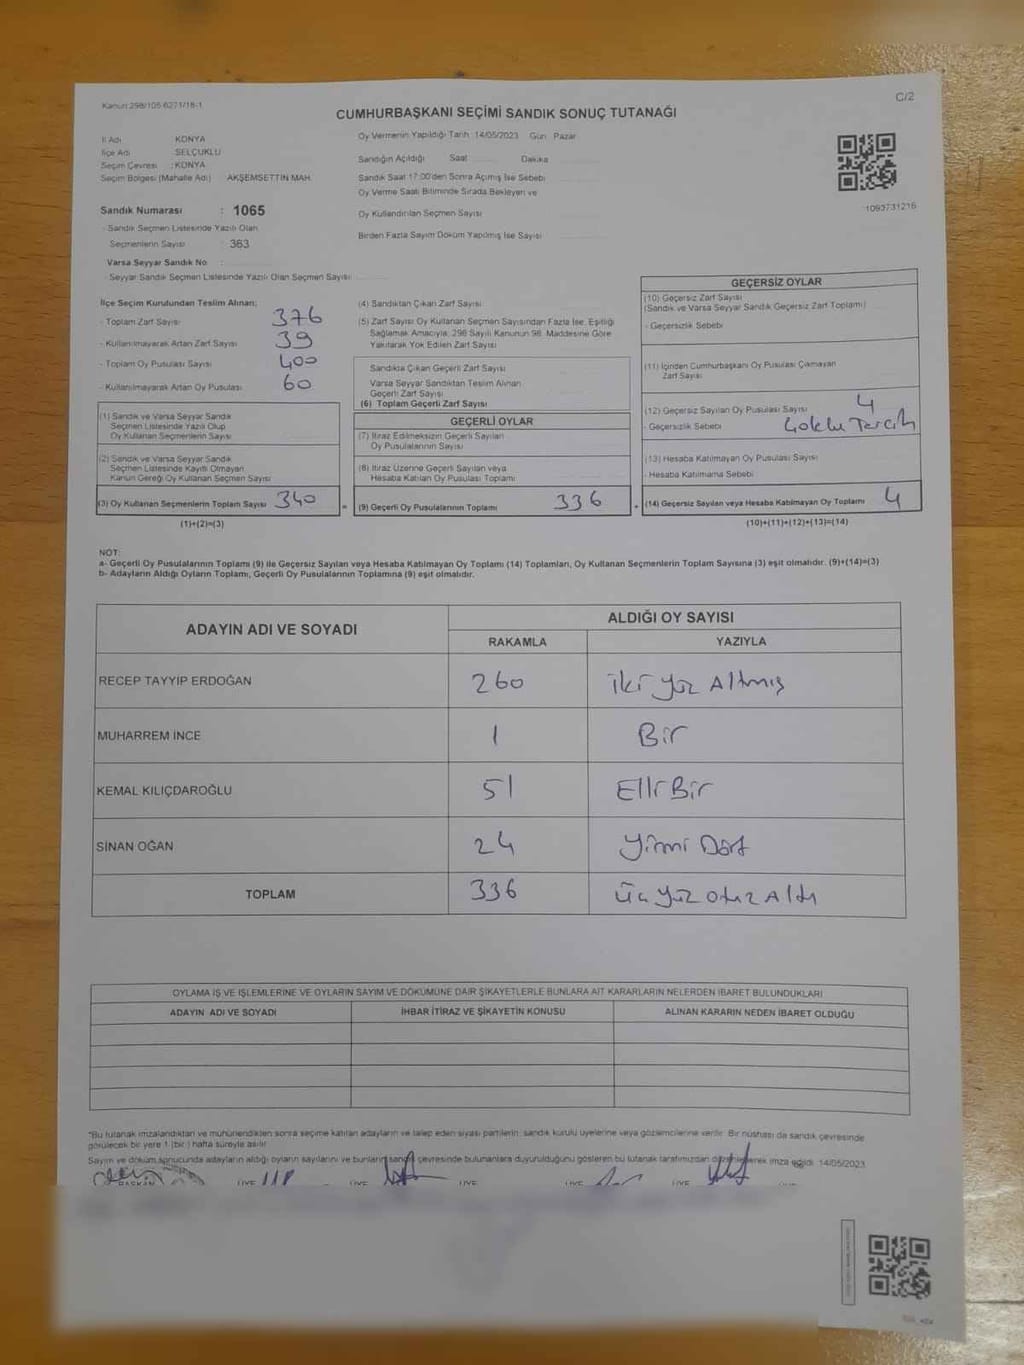 Kanun 298/105 6271/18-1
C/2
CUMHURBAŞKANI SEÇİMİ SANDIK SONUÇ TUTANAĞI
İl Adı KONYA
İlçe Adı SELÇUKLU
Seçim Çevresi : KONYA
Seçim Bölgesi (Mahalle Adı) AKŞEMSETTİN MAH.
Sandık Numarası : 1065
- Sandık Seçmen Listesinde Yazılı Olan
Seçmenlerin Sayısı : 363
Varsa Seyyar Sandık No :
- Seyyar Sandık Seçmen Listesinde Yazılı Olan Seçmen Sayısı
Oy Vermenin Yapıldığı Tarih 14/05/2023 Gün Pazar
Sandığın Açıldığı Saat Dakika
Sandık Saat 17:00'den Sonra Açımış İse Sebebi
Oy Verme Saati Bitiminde Sırada Bekleyen ve
Oy Kullandırılan Seçmen Sayısı
Birden Fazla Sayım Döküm Yapılmış İse Sayısı
1093731216
İlçe Seçim Kurulundan Teslim Alınan;
- Toplam Zarf Sayısı 376
- Kullanılmayarak Artan Zarf Sayısı 39
- Toplam Oy Pusulası Sayısı 400
- Kullanılmayarak Artan Oy Pusulası 60
(1) Sandık ve Varsa Seyyar Sandık
Seçmen Listesinde Yazılı Olup
Oy Kullanan Seçmenlerin Sayısı
(2) Sandık ve Varsa Seyyar Sandık
Seçmen Listesinde Kayıtlı Olmayan
Kanun Gereği Oy Kullanan Seçmen Sayısı
(3) Oy Kullanan Seçmenlerin Toplam Sayısı 340
(1)+(2)=(3)
(4) Sandıktan Çıkan Zarf Sayısı
(5) Zarf Sayısı Oy Kullanan Seçmen Sayısından Fazla İse, Eşitliği
Sağlamak Amacıyla, 298 Sayılı Kanunun 98. Maddesine Göre
Yakılarak Yok Edilen Zarf Sayısı
Sandıkta Çıkan Geçerli Zarf Sayısı
Varsa Seyyar Sandıktan Teslim Alınan
Geçerli Zarf Sayısı
(6) Toplam Geçerli Zarf Sayısı
GEÇERLİ OYLAR
(7) İtiraz Edilmeksizin Geçerli Sayılan
Oy Pusulalarının Sayısı
(8) İtiraz Üzerine Geçerli Sayılan veya
Hesaba Katılan Oy Pusulaları Toplamı
(9) Geçerli Oy Pusulalarının Toplamı 336
GEÇERSİZ OYLAR
(10) Geçersiz Zarf Sayısı
(Sandık ve Varsa Seyyar Sandık Geçersiz Zarf Toplamı)
- Geçersizlik Sebebi
(11) İçinden Cumhurbaşkanı Oy Pusulası Çıkmayan
Zarf Sayısı
(12) Geçersiz Sayılan Oy Pusulası Sayısı 4
- Geçersizlik Sebebi Çoklu Tercih
(13) Hesaba Katılmayan Oy Pusulası Sayısı
- Hesaba Katılmama Sebebi
(14) Geçersiz Sayılan veya Hesaba Katılmayan Oy Toplamı 4
(10)+(11)+(12)+(13)=(14)
NOT:
a- Geçerli Oy Pusulalarının Toplamı (9) ile Geçersiz Sayılan veya Hesaba Katılmayan Oy Toplamı (14) Toplamları, Oy Kullanan Seçmenlerin Toplam Sayısına (3) eşit olmalıdır. (9)+(14)=(3)
b- Adayların Aldığı Oyların Toplamı, Geçerli Oy Pusulalarının Toplamına (9) eşit olmalıdır.
ADAYIN ADI VE SOYADI ALDIĞI OY SAYISI
RAKAMLA YAZIYLA
RECEP TAYYİP ERDOĞAN 260 iki yüz Altmış
MUHARREM İNCE 1 Bir
KEMAL KILIÇDAROĞLU 51 Elli Bir
SİNAN OĞAN 24 Yirmi Dört
TOPLAM 336 üç yüz otuz Altı
OYLAMA İŞ VE İŞLEMLERİNE VE OYLARIN SAYIM VE DÖKÜMÜNE DAİR ŞİKAYETLERLE BUNLARA AİT KARARLARIN NELERDEN İBARET BULUNDUKLARI
ADAYIN ADI VE SOYADI İHBAR İTİRAZ VE ŞİKAYETİN KONUSU ALINAN KARARIN NEDEN İBARET OLDUĞU
*Bu tutanak imzalandıktan ve mühürlendikten sonra seçime katılan adayların ve talep eden siyasi partilerin, sandık kurulu üyelerine veya gözlemcilerine verilir. Bir nüshası da sandık çevresinde
görülecek bir yere 1 (bir) hafta süreyle asılır
Sayım ve döküm sonucunda adayların aldığı oyların sayılarını ve bunların sandık çevresinde bulunanlara duyurulduğunu gösteren bu tutanak tarafımızdan düzenlenerek imza edildi. 14/05/2023
BAŞKAN ÜYE ÜYE ÜYE ÜYE ÜYE ÜYE